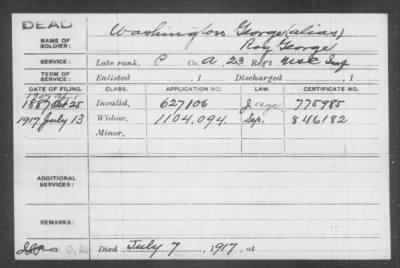 DEAD
NAME OF SOLDIER: Washington George (alias)
Roy George
SERVICE: Late rank, P Co. A 23 Reg't Inf
TERM OF SERVICE: Enlisted , 1 Discharged , 1
DATE OF FILING. CLASS. APPLICATION NO. LAW. CERTIFICATE NO.
1887 25 Invalid, 627106 age 775985
1917 July 13 Widow, 1104.094. 846182
Minor,
ADDITIONAL SERVICES:
REMARKS:
Died July 7, 1917, at